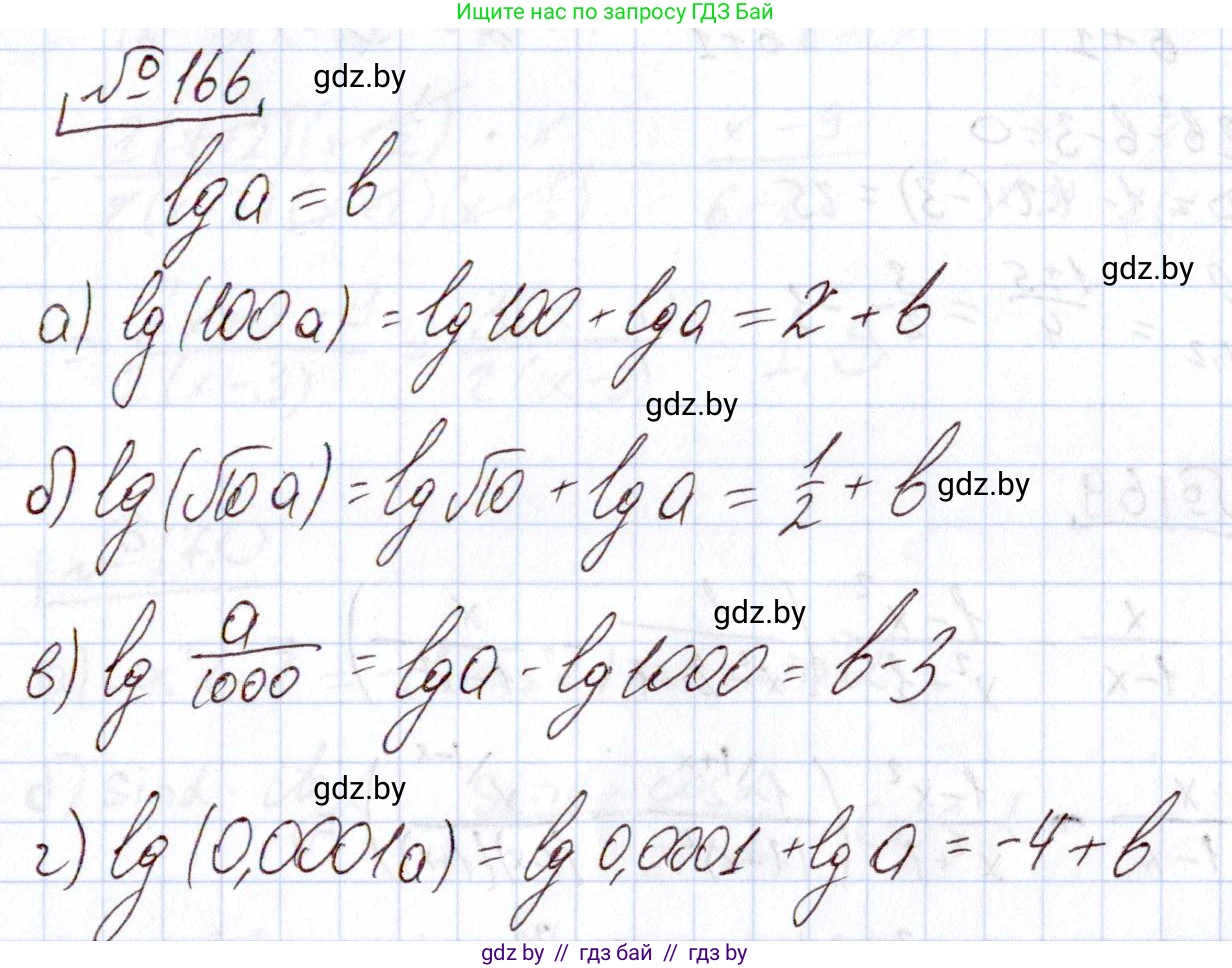 Ищите нас по запросу ГДЗ Бай
№166 gdz.by
lg a = b
gdz.by
а) lg(100a) = lg 100 + lg a = 2 + b
gdz.by
б) lg(√10 a) = lg √10 + lg a = 1/2 + b gdz.by
gdz.by
в) lg a/1000 = lg a - lg 1000 = b - 3
gdz.by
г) lg(0,0001a) = lg 0,0001 + lg a = -4 + b
gdz.by // гдз бай // гдз by